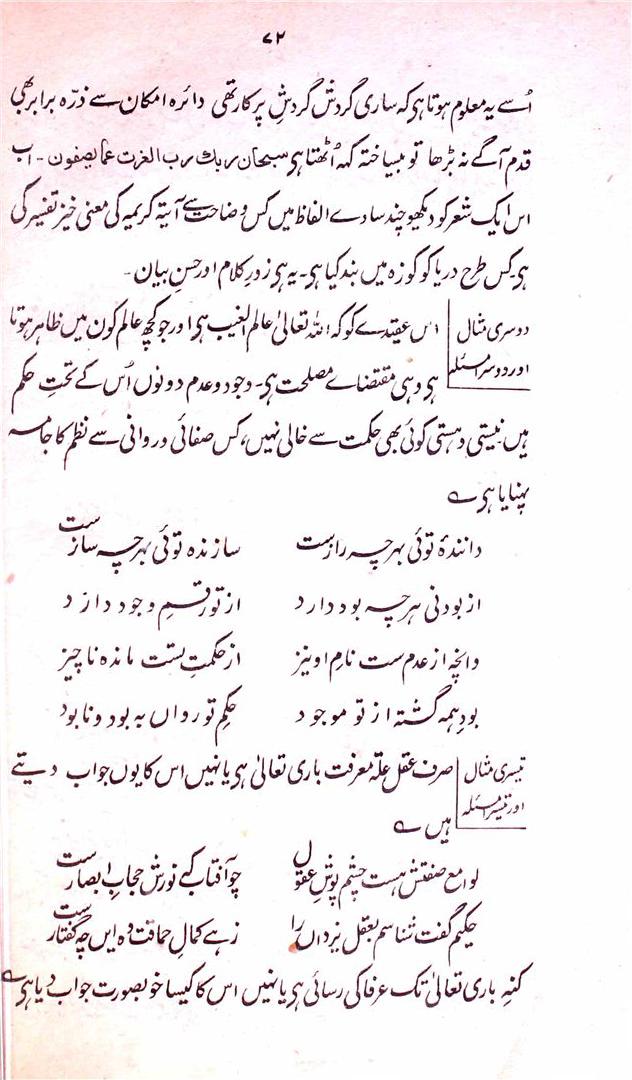 ۷۲
اُسے یہ معلوم ہوتا ہی کہ ساری گردش گردشِ پرکار تھی دائرہ امکان سے ذرّہ برابر بھی
قدم آگے نہ بڑھا تو بیساختہ کہہ اُٹھتا ہی سبحان ربك رب العزت عما یصفون۔ اب
اس ایک شعر کو دیکھو چند سادے الفاظ میں کس وضاحت سے آیۃ کریمہ کی معنی خیز تفسیر کی
ہی۔ کس طرح دریا کو کوزہ میں بند کیا ہی۔ یہ ہی زورِ کلام اور حسنِ بیان۔
دوسری مثال
اور دوسرا مسئلہ
اس عقیدے کو کہ اللہ تعالیٰ عالم الغیب ہی اور جو کچھ عالم کون میں ظاہر ہوتا
ہی وہی مقتضاے مصلحت ہی۔ وجود و عدم دونوں اُس کے تحتِ حکم
ہیں۔ نیستی و ہستی کوئی بھی حکمت سے خالی نہیں، کس صفائی و روانی سے نظم کا جامہ
پہنایا ہی ؎
دانندۂ توئی بہرچہ رازست سازندہ توئی بہرچہ سازست
از بودنی ہرچہ بود دارد از تو رقمِ وجود دارد
وانچہ از عدم ست نامِ او نیز از حکمتِ تست ماندہ ناچیز
بودِ ہمہ گشتہ از تو موجود حکمِ تو رواں بہ بود و نابود
تیسری مثال
اور تیسرا مسئلہ
صرف عقل علۃ معرفت باری تعالیٰ ہی یا نہیں اس کا یوں جواب دیتے
ہیں ؎
لوامعِ صفتش ہست چشم پوشِ عقول چو آفتاب کہ نورش حجابِ ابصارست
حکیم گفت شناسم بعقل یزداں را زہے کمالِ حماقت وہ ایں چہ گفتارست
کنہِ باری تعالیٰ تک عرفا کی رسائی ہی یا نہیں اس کا کیسا خوبصورت جواب دیا ہی ؎